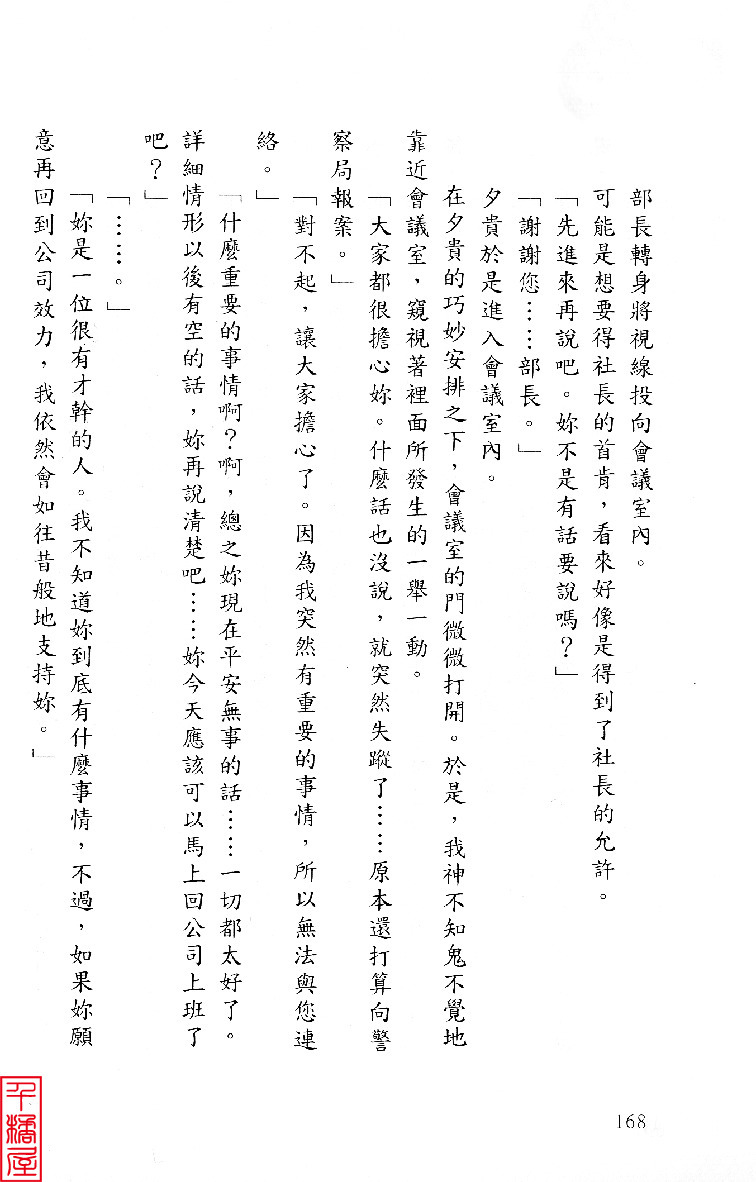 部長轉身將視線投向會議室內。
可能是想要得社長的首肯，看來好像是得到了社長的允許。
「先進來再說吧。妳不是有話要說嗎？」
「謝謝您……部長。」
夕貴於是進入會議室內。
在夕貴的巧妙安排之下，會議室的門微微打開。於是，我神不知鬼不覺地
靠近會議室，窺視著裡面所發生的一舉一動。
「大家都很擔心妳。什麼話也沒說，就突然失蹤了……原本還打算向警
察局報案。」
「對不起，讓大家擔心了。因為我突然有重要的事情，所以無法與您連
絡。」
「什麼重要的事情啊？啊，總之妳現在平安無事的話……一切都太好了。
詳細情形以後有空的話，妳再說清楚吧……妳今天應該可以馬上回公司上班了
吧？」
「……。」
「妳是一位很有才幹的人。我不知道妳到底有什麼事情，不過，如果妳願
意再回到公司效力，我依然會如往昔般地支持妳。」
168
千橘屋